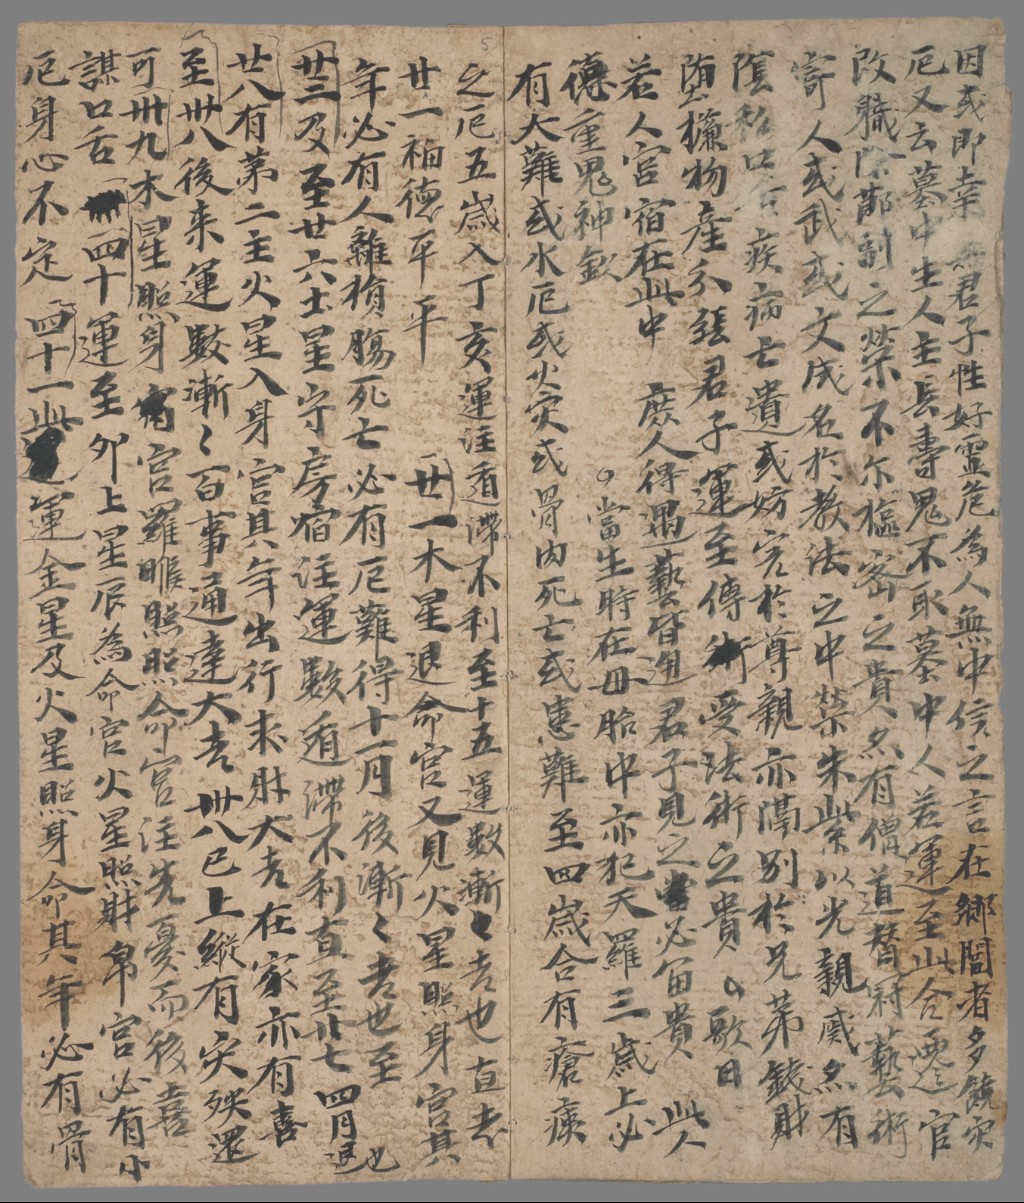 因或即幸無君子性好靈危為人無中信之言在鄉閭者多饒灾
厄又云墓中生人主長壽鬼不取墓中人若運至此合遷官
改職除鄙副之榮不尔樞密之貴亦有僧道醫卦藝術
寄人或武或文成名於教法之中榮朱紫以光親戚亦有
陰私口舌疾病亡遺或妨害於尊親亦隔別於兄苐錢財
物產不發君子運至傳術受法術之貴歌曰
若人宮宿在此中 庶人得遇藝皆通君子見之必富貴 此人
傳重鬼神欽 當生時在毋胎中亦犯天羅三歲上必
有大難或水厄或火灾或骨肉死亡或患難至四歲合有瘡痍
之厄五歲入丁亥運注迍滯不利至十五運數漸〻吉也直去
廿一福德平平 廿一木星退命宮又見火星照身宮其
年必有人離損傷死亡必有厄難得十一月後漸〻吉也至
廿三及至廿六土星守房宿注運數迍滯不利直至廿七四月退也
廿八有苐二主火星入身宮其年出行求財大吉在家亦有喜
至卅八後来運數漸〻百事通達大吉卅八已上縱有灾殃還
可卅九木星照身宮羅睺照照命宮注先憂而後喜
謀口舌四十運至夘上星辰為命宮火星照財帛宮必有小
厄身心不定四十一此運金星及火星照身命其年必有骨